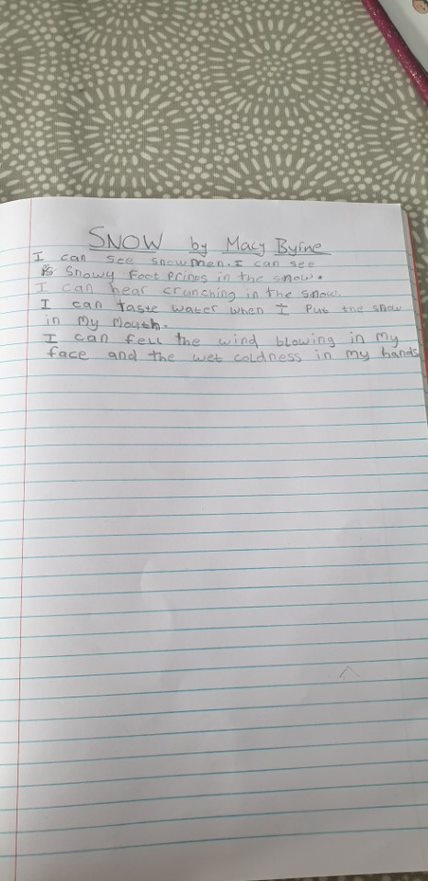 SNOW by Macy Byrne
I can see snowmen. I can see
snowy foot prings in the snow.
I can hear crunching in the snow.
I can taste water when I put the snow
in my mouth.
I can fell the wind blowing in my
face and the wet coldness in my hands